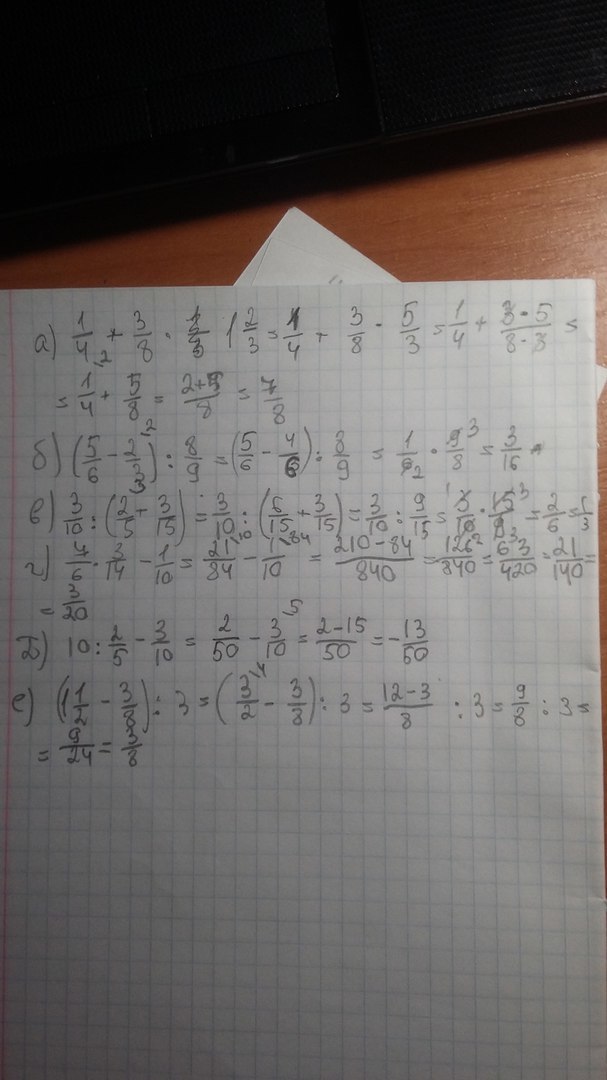 а) 1/4 + 3/8 · 1 2/3 = 1/4 + 3/8 · 5/3 = 1/4 + 3·5/8·3 =
= 1/4 + 5/8 = 2+5/8 = 7/8
б) (5/6 - 2/3) : 8/9 = (5/6 - 4/6) : 8/9 = 1/6 · 9/8 = 3/16
в) 3/10 : (2/5 + 3/15) = 3/10 : (6/15 + 3/15) = 3/10 : 9/15 = 3/10 · 15/9 = 2/6 = 1/3
г) 7/6 · 3/14 - 1/10 = 21/84 - 1/10 = 210-84/840 = 126/840 = 63/420 = 21/140 =
= 3/20
д) 10 : 2/5 - 3/10 = 2/50 - 3/10 = 2-15/50 = -13/50
е) (1 1/2 - 3/8) : 3 = (3/2 - 3/8) : 3 = 12-3/8 : 3 = 9/8 : 3 =
= 9/24 = 3/8